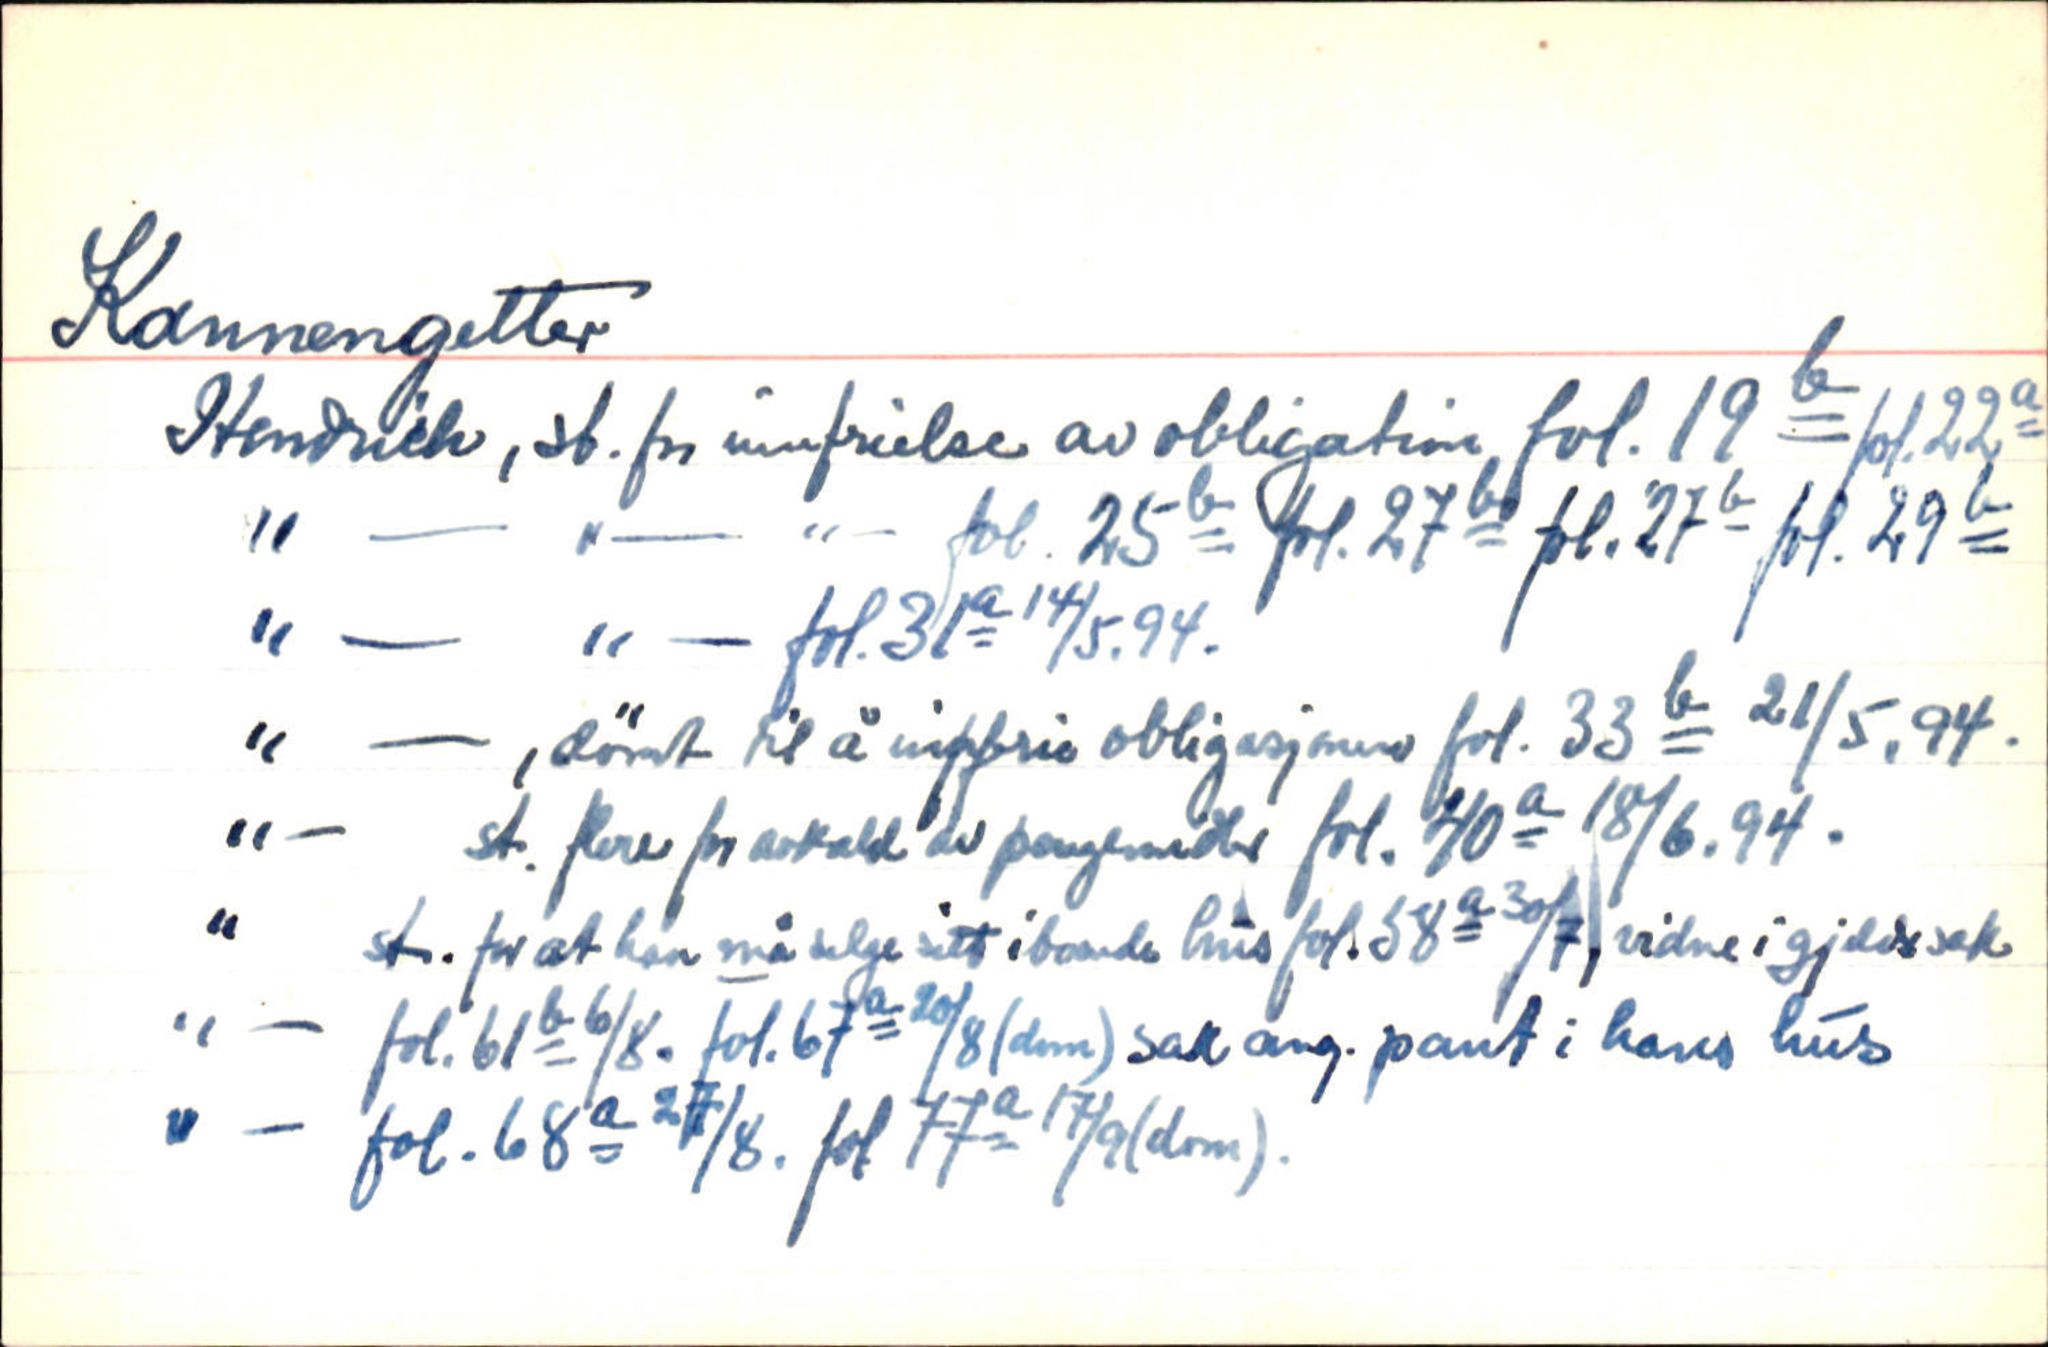 Kannengetter
Hendrich, st. for innfrielse av obligation, fol. 19 b fol. 22 a
" — " — " — fol. 25 b fol. 27 b fol. 27 b fol. 29 b
" — " — fol. 31 a 14/5.94.
" —, dömt til å innfrie obligasjonen fol. 33 b 21/5.94.
" — st. flere for avkald av pengemidler fol. 40 a 18/6.94.
" st. for at han må selge sitt iboende hus fol. 58 a 30/7, vidne i gjeldssak
" — fol. 61 b 6/8. fol. 67 a 20/8 (dom) sak ang. pant i hans hus
" — fol. 68 a 27/8. fol 77 a 17/9 (dom).